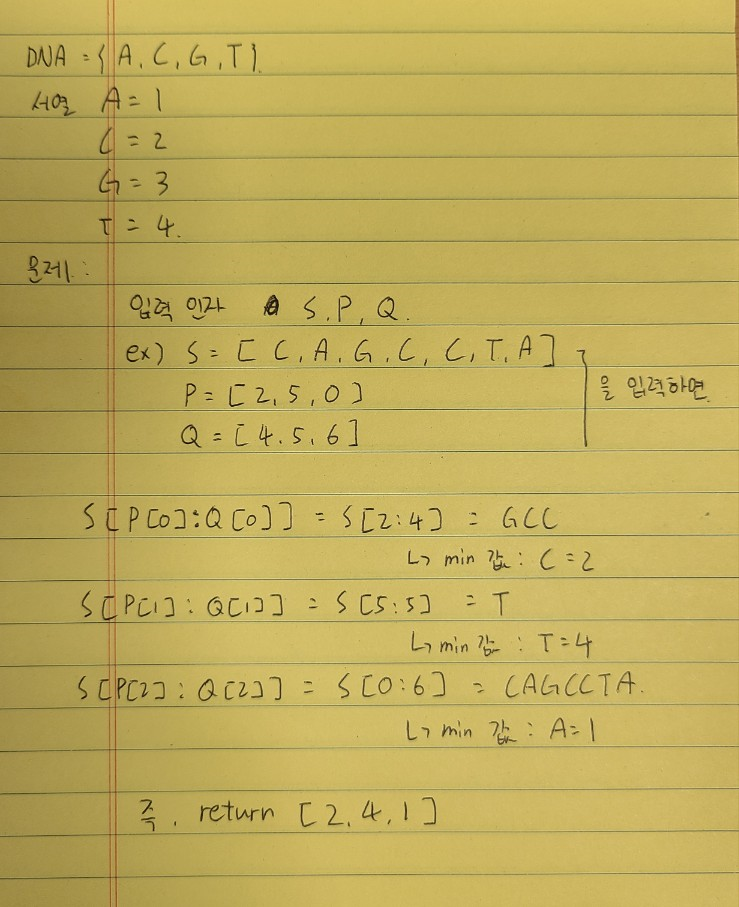 DNA = { A, C, G, T }.
서열 A = 1
C = 2
G = 3
T = 4.
문제 :
입력 인자 S, P, Q.
ex) S = [ C, A, G, C, C, T, A ]
P = [ 2, 5, 0 ]
을 입력하면
Q = [ 4. 5, 6 ]
S[P[0]:Q[0]] = S[2:4] = GCC
↳ min 값 : C = 2
S[P[1] : Q[1]] = S[5:5] = T
↳ min 값 : T = 4
S[P[2] : Q[2]] = S[0:6] = CAGCCTA.
↳ min 값 : A = 1
즉, return [ 2, 4, 1 ]